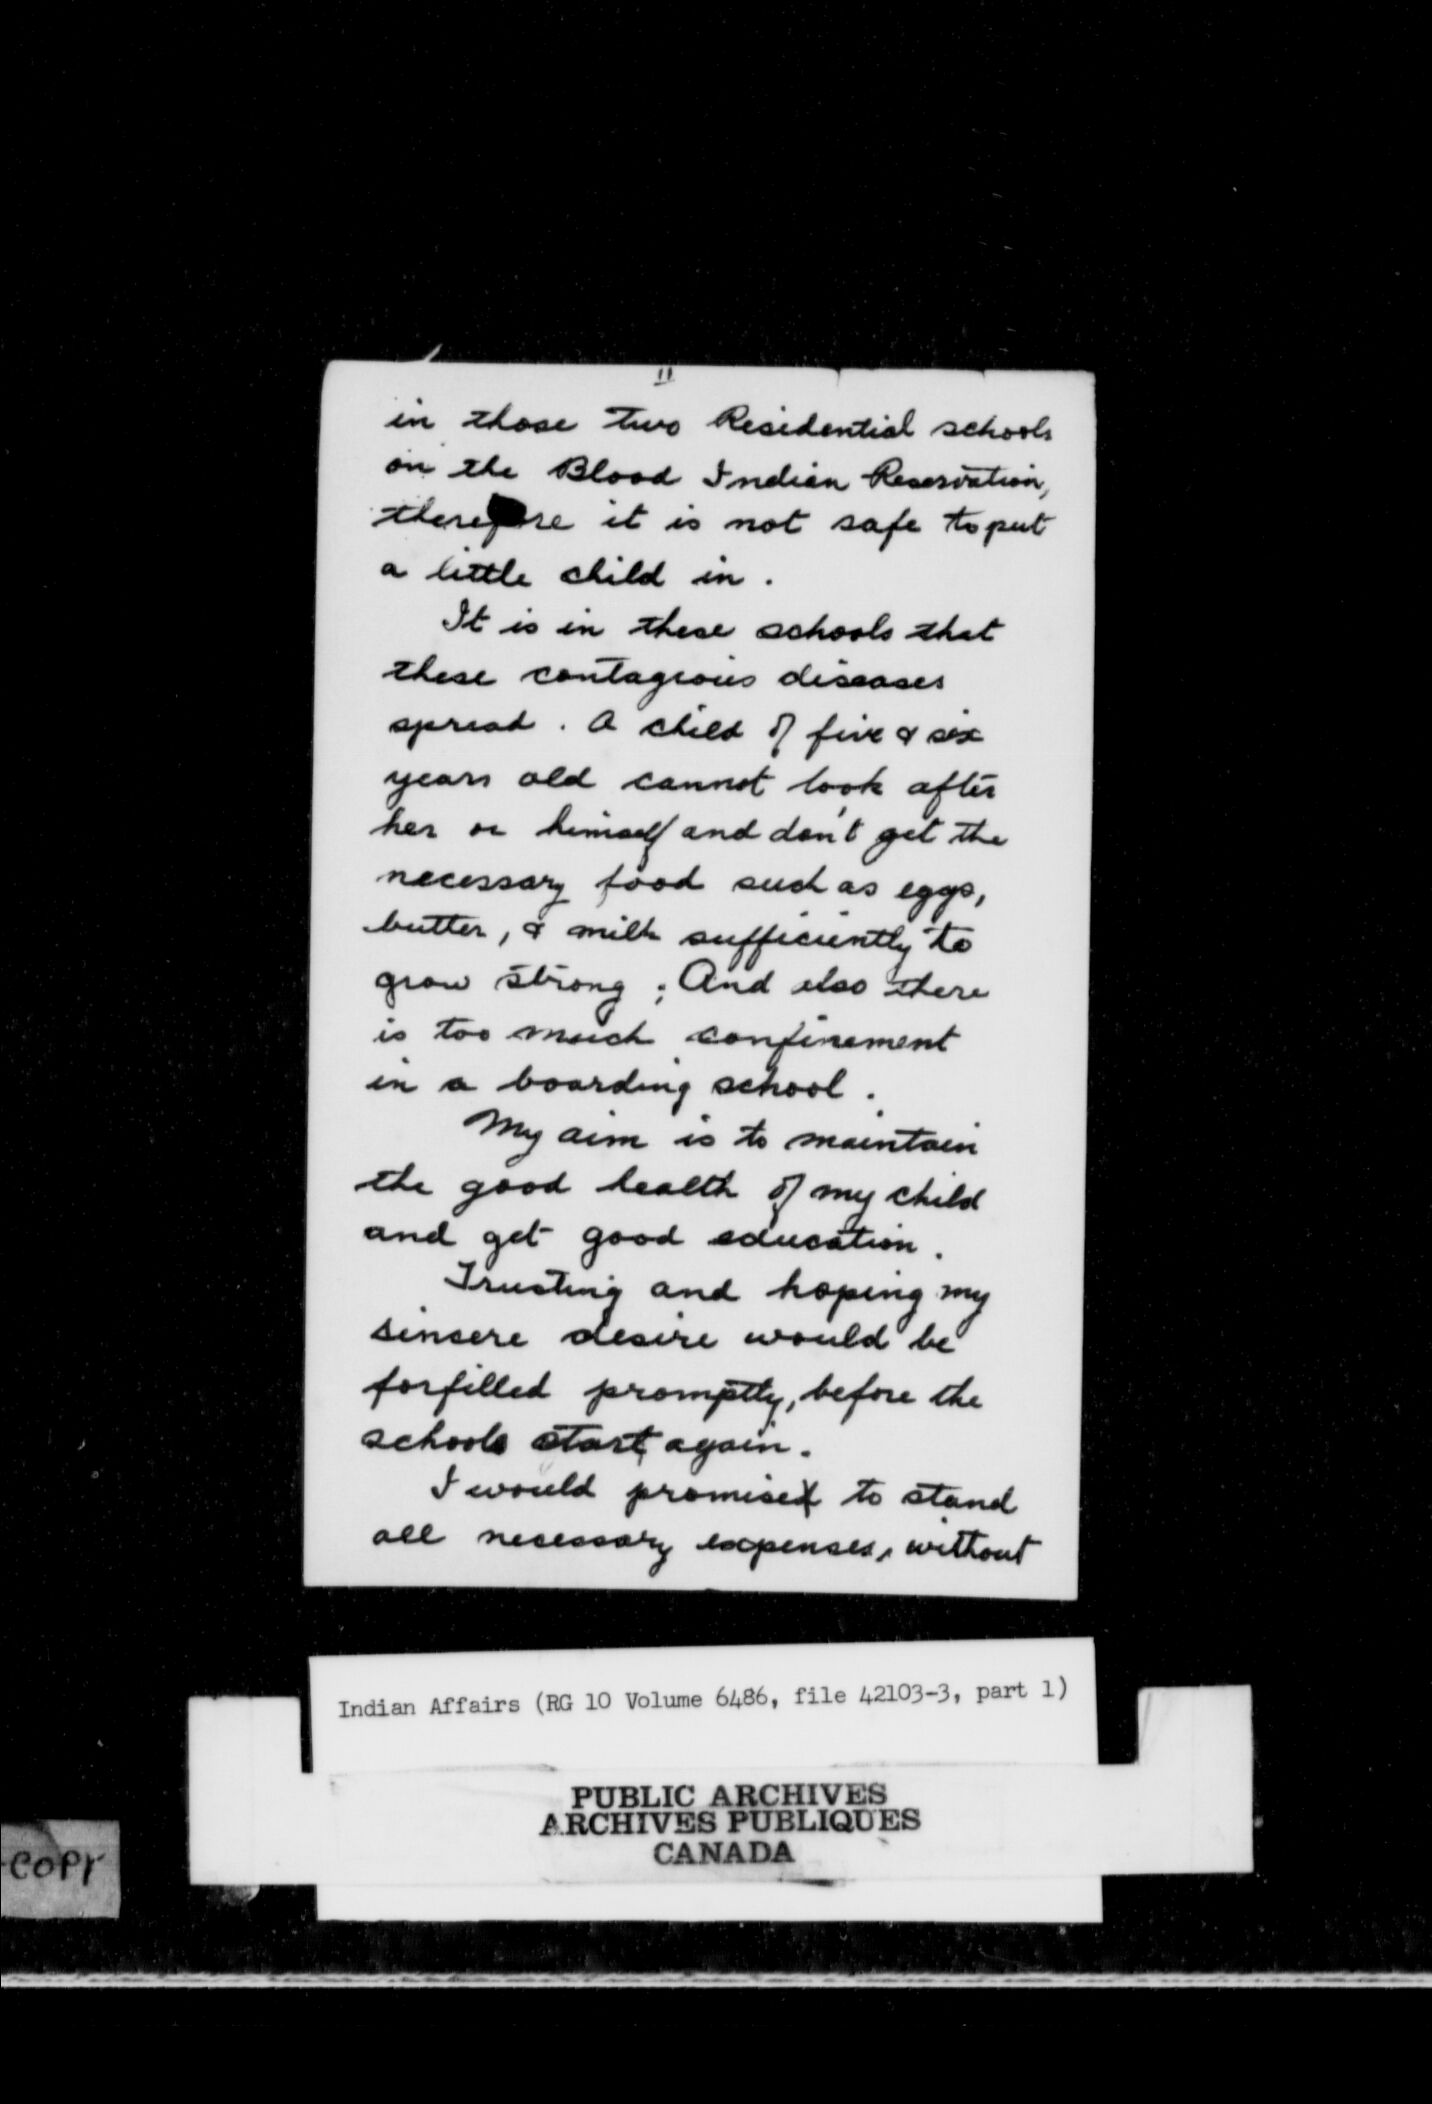 II
in those two Residential schools
on the Blood Indian Reservation,
therefore it is not safe to put
a little child in.
It is in these schools that
these contagious diseases
spread. A child of five & six
years old cannot look after
her or himself and don't get the
necessary food such as eggs,
butter, & milk sufficiently to
grow strong; And also there
is too much confinement
in a boarding school.
My aim is to maintain
the good health of my child
and get good education.
Trusting and hoping my
sinsere desire would be
forfilled promptly, before the
schools start again.
I would promise to stand
all necessary expenses, without
Indian Affairs (RG 10 Volume 6486, file 42103-3, part 1)
PUBLIC ARCHIVES
ARCHIVES PUBLIQUES
CANADA
COPY